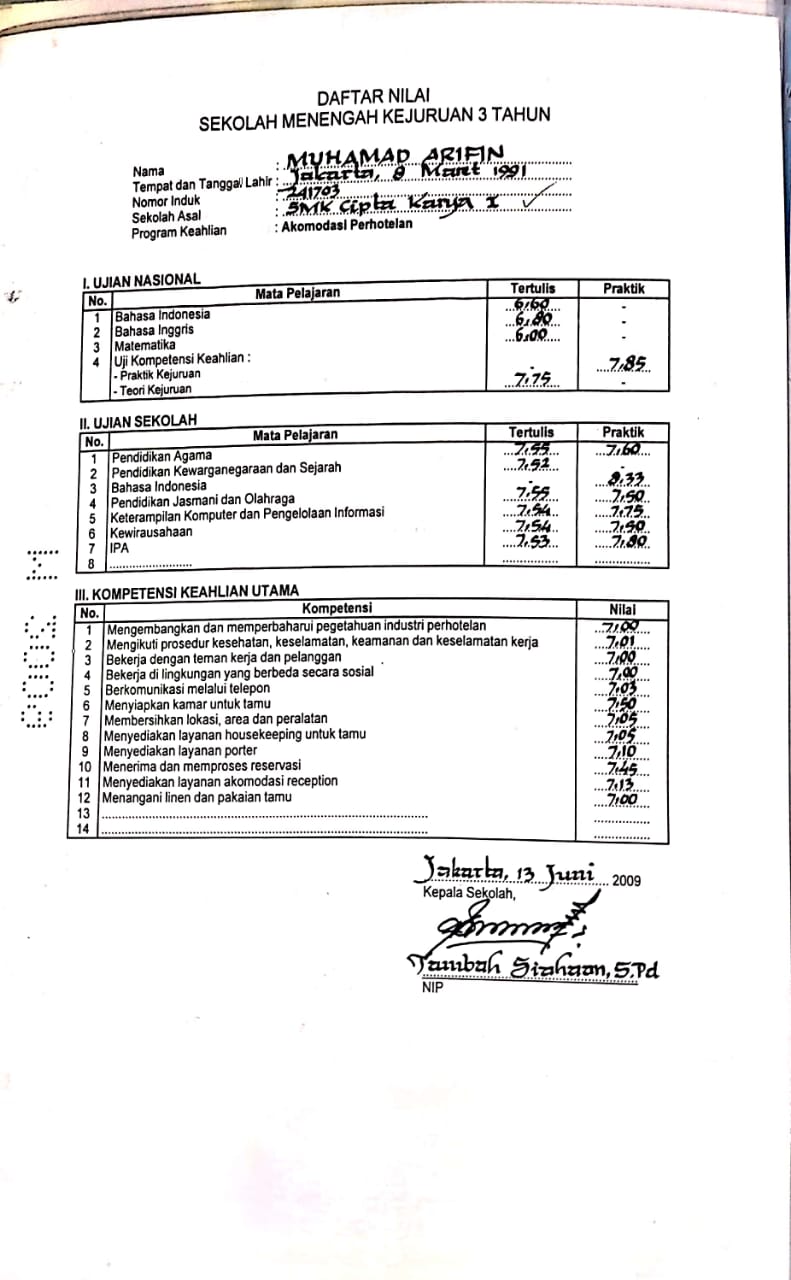 DAFTAR NILAI
SEKOLAH MENENGAH KEJURUAN 3 TAHUN
Nama : MUHAMAD ARIFIN
Tempat dan Tanggal Lahir : Jakarta, 8 Maret 1991
Nomor Induk : 241703
Sekolah Asal : SMK Cipta Karya I ✓
Program Keahlian : Akomodasi Perhotelan
I. UJIAN NASIONAL
No. Mata Pelajaran Tertulis Praktik
1 Bahasa Indonesia 6,60 -
2 Bahasa Inggris 6,80 -
3 Matematika 6,00 -
4 Uji Kompetensi Keahlian :
- Praktik Kejuruan - 7,85
- Teori Kejuruan 7,75 -
II. UJIAN SEKOLAH
No. Mata Pelajaran Tertulis Praktik
1 Pendidikan Agama 7,55 7,60
2 Pendidikan Kewarganegaraan dan Sejarah 7,52 -
3 Bahasa Indonesia - 8,33
4 Pendidikan Jasmani dan Olahraga 7,55 7,50
5 Keterampilan Komputer dan Pengelolaan Informasi 7,54 7,75
6 Kewirausahaan 7,54 7,50
7 IPA 7,53 7,80
8
III. KOMPETENSI KEAHLIAN UTAMA
No. Kompetensi Nilai
1 Mengembangkan dan memperbaharui pegetahuan industri perhotelan 7,00
2 Mengikuti prosedur kesehatan, keselamatan, keamanan dan keselamatan kerja 7,01
3 Bekerja dengan teman kerja dan pelanggan 7,00
4 Bekerja di lingkungan yang berbeda secara sosial 7,00
5 Berkomunikasi melalui telepon 7,03
6 Menyiapkan kamar untuk tamu 7,50
7 Membersihkan lokasi, area dan peralatan 7,05
8 Menyediakan layanan housekeeping untuk tamu 7,05
9 Menyediakan layanan porter 7,10
10 Menerima dan memproses reservasi 7,45
11 Menyediakan layanan akomodasi reception 7,13
12 Menangani linen dan pakaian tamu 7,00
13
14
Jakarta, 13 Juni 2009
Kepala Sekolah,
Tambah Siahaan, S.Pd
NIP